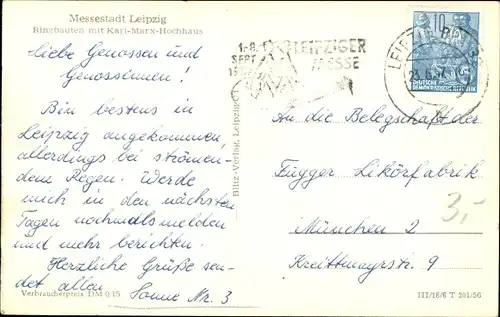 Messestadt Leipzig
Ringbauten mit Karl-Marx-Hochhaus
Liebe Genossen und
Genossinnen!
Bin bestens in
Leipzig angekommen,
allerdings bei strömen-
dem Regen. Werde
mich in den nächsten
Tagen nochmals melden
und mehr berichten.
Herzliche Grüße sen-
det allen
Sonne Nr. 3
Verbraucherpreis DM 0,15
Blitz-Verlag, Leipzig
1.-8.
SEPT.
LEIPZIGER
MESSE
LEIPZIG
10
DEUTSCHE
DEMOKRATISCHE REPUBLIK
An die Belegschaft der
Függer Likörfabrik
München 2
Kreittmayrstr. 9
3,-
III/18/6 T 201/56